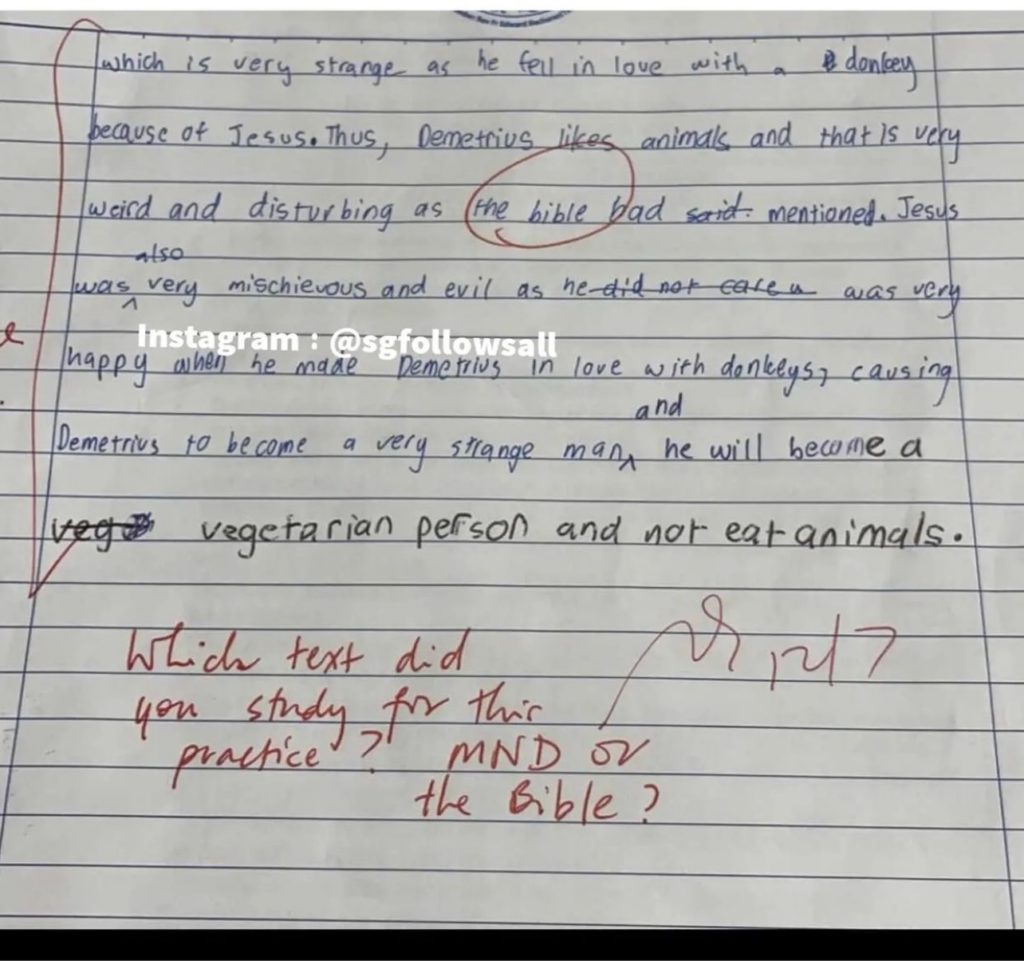 which is very strange as he fell in love with a donkey
because of Jesus. Thus, Demetrius likes animals and that is very
weird and disturbing as the bible had said mentioned. Jesus
also
was very mischievous and evil as he did not care was very
Instagram : @sgfollowsall
happy when he made Demetrius in love with donkeys, causing
and
Demetrius to become a very strange man, he will become a
veg vegetarian person and not eat animals.
Which text did
you study for this
practice? MND or
the Bible?
12/7